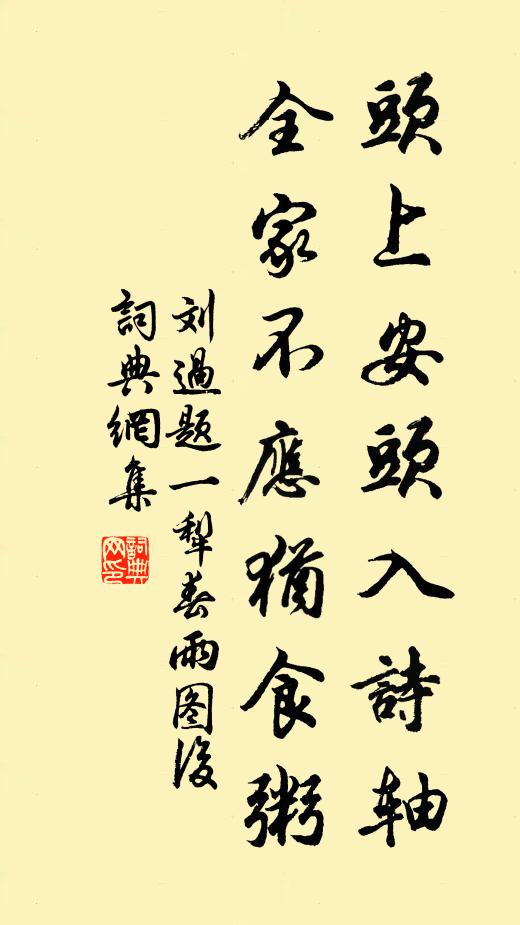 頭上安頭入詩軸
全家不應猶食粥
刘過題一犁春雨图後
詞典網集
詞典
网印